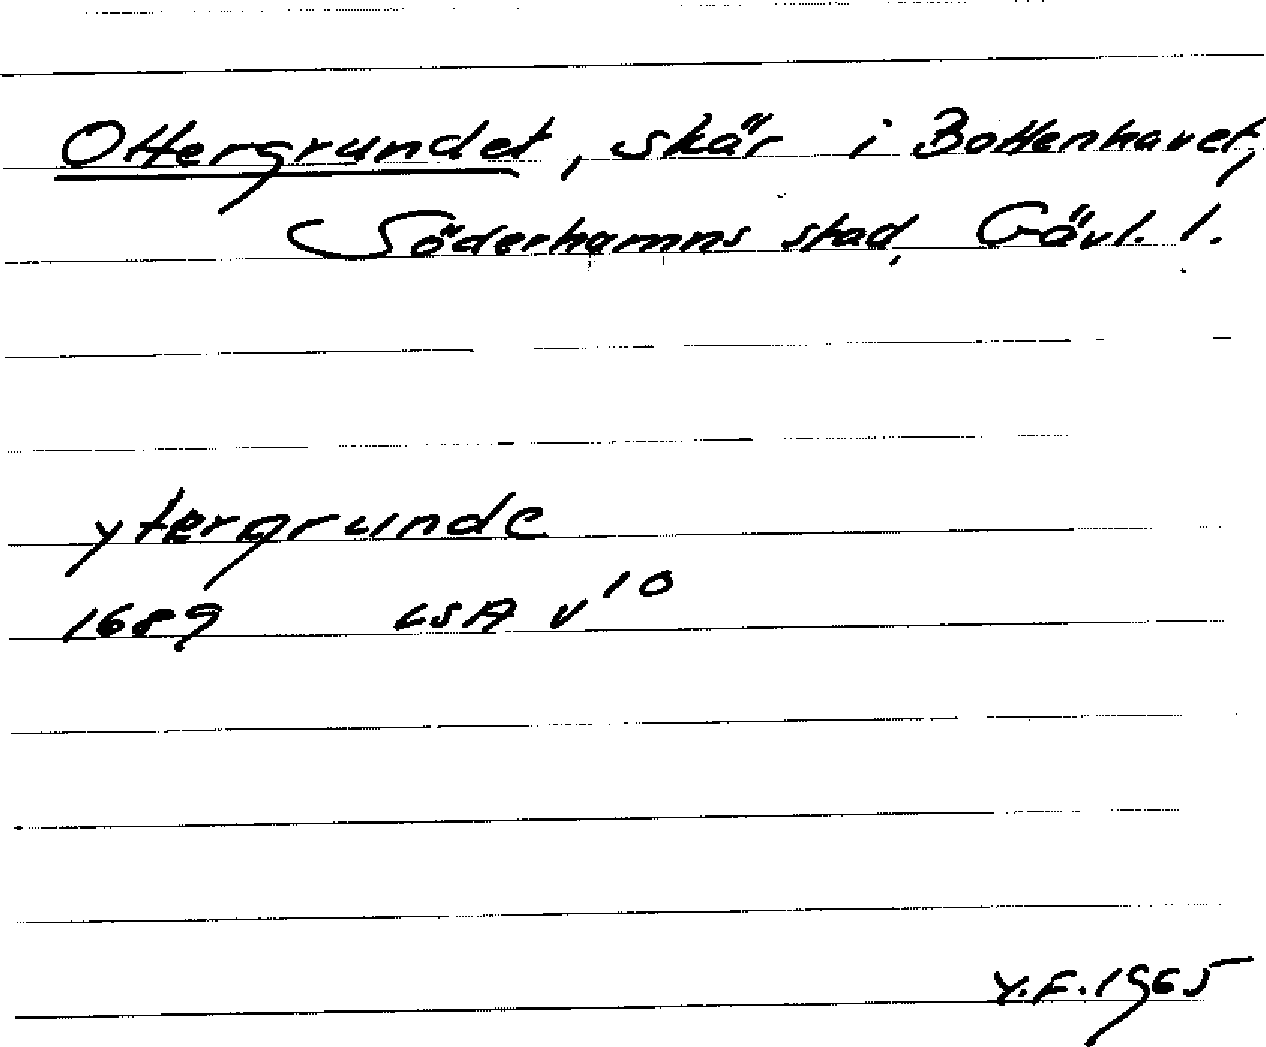 Ottergrundet, skär i Bottenhavet,
Söderhamns stad, Gävl. l.
ytergrunde
1689 LSA v¹⁰
Y.F. 1965